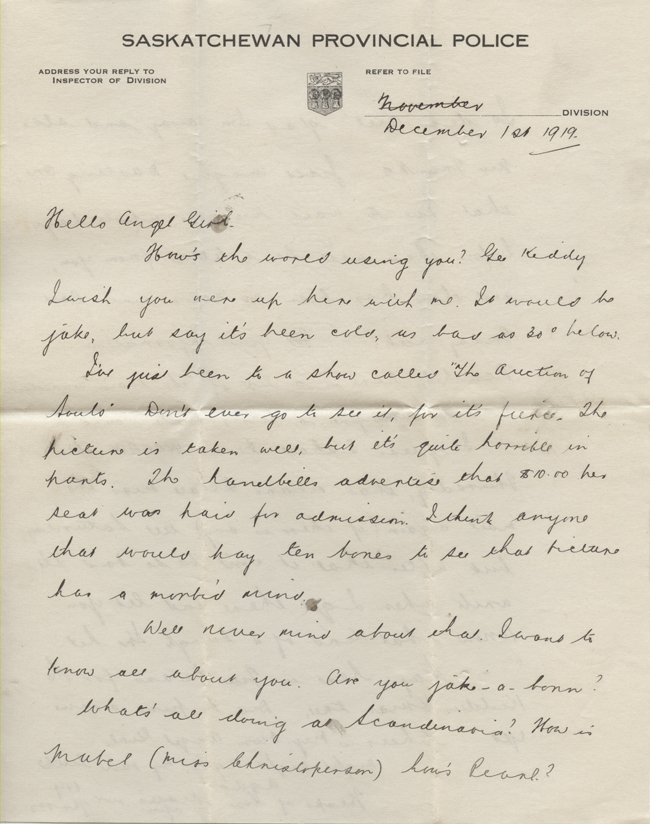 SASKATCHEWAN PROVINCIAL POLICE
ADDRESS YOUR REPLY TO
INSPECTOR OF DIVISION
REFER TO FILE
November DIVISION
December 1st 1919.
Hello Angel Girl.
How's the world using you? Gee Kiddy
I wish you were up here with me. It would be
jake, but say it's been cold, as bad as 30° below.
I've just been to a show called "The Auction of
Souls" Don't ever go to see it, for it's fierce. The
picture is taken well, but it's quite horrible in
parts. The handbills advertise that $10.00 per
seat was paid for admission. I think anyone
that would pay ten bones to see that picture
has a morbid mind.
Well never mind about that. I want to
know all about you. Are you jake-a-bonn?
What's all doing at Scandinavia? How is
Mabel (Miss Christopherson) how's Pearl?